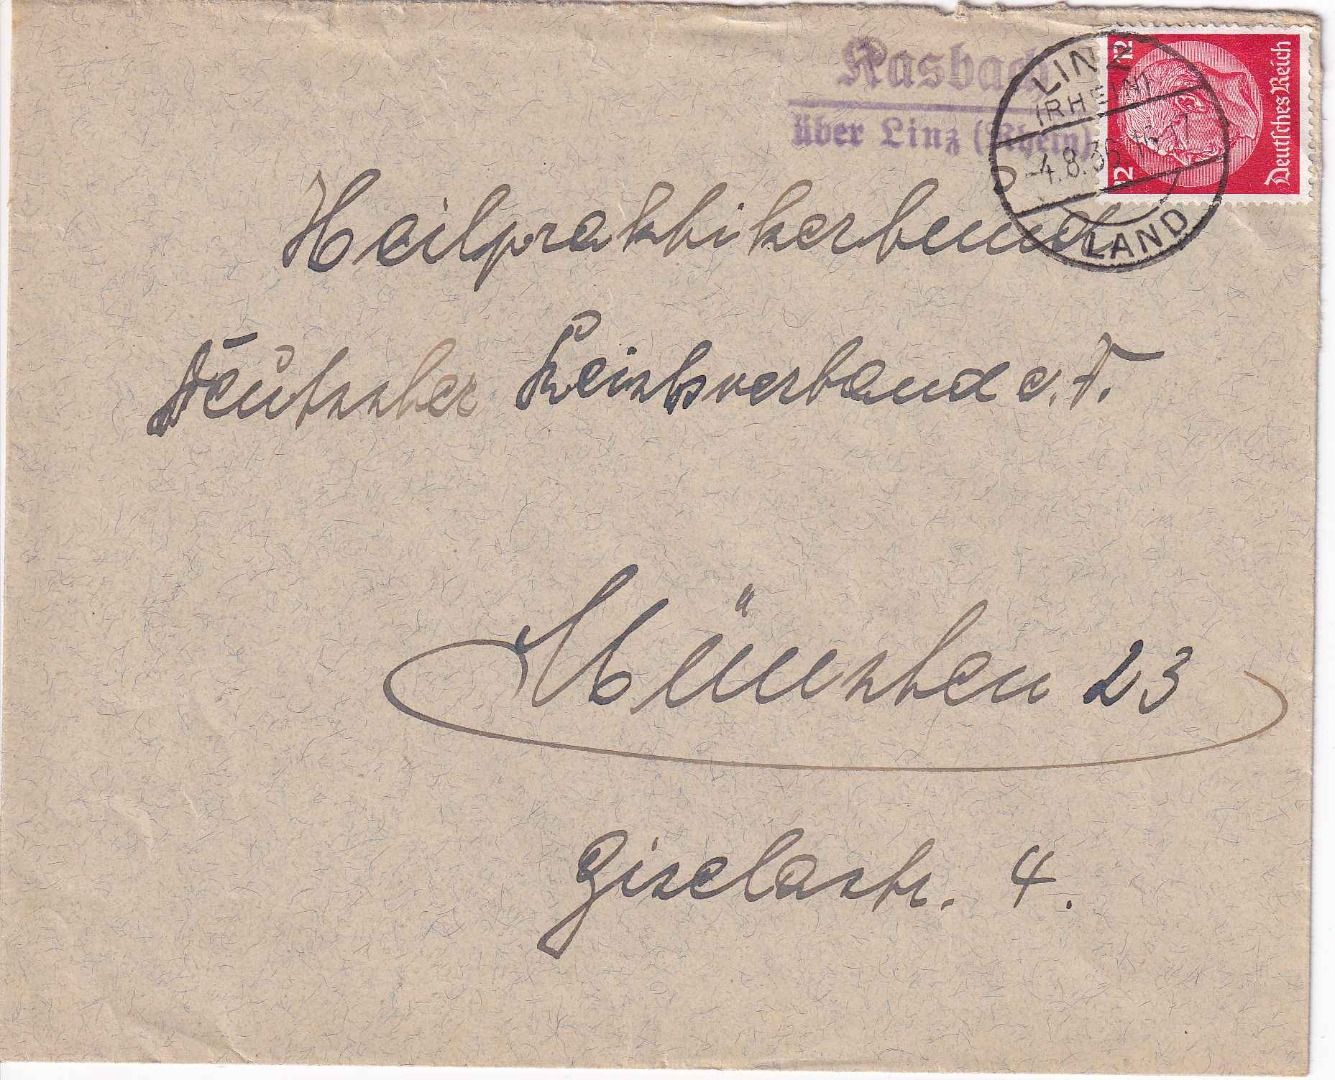 Kasbach
über Linz (Rhein)
LINZ
(RHEIN)
-4.8.36.16-17
LAND
12
12
Deutsches Reich
Heilpraktikerbund
Deutscher Reichsverband e.V.
München 23
Giselastr. 4.